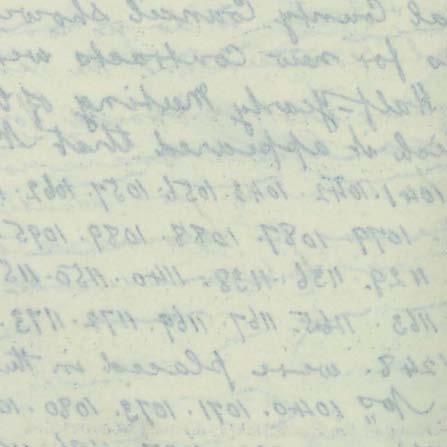 al County Council shown
for new Contracts wer
Half-Yearly Meeting of t
it appeared that
1041.1042.1043.1056.1057.1062.
1079 1087. 1088. 1089. 1095
1129. 1136. 1138. 1140. 1150. 115
1163 1165. 1167. 1169. 1172. 1173.
248. were placed in th
Nos 1040. 1071. 1073. 1080. 10